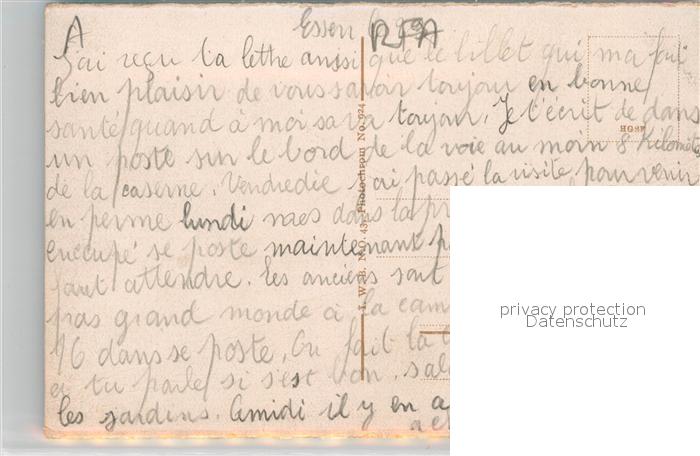 A
Essen
RFA
J'ai reçu ta lettre aussi que le billet qui ma fait
bien plaisir de vous savoir toujour en bonne
santé quand à moi sa va toujour. Je t'écrit de dans
un poste sur le bord de la voie au moin 8 Kilomètre
de la caserne. Vendredie j'ai passé la visite pour venir
en perme lundi mes dans la
enccupé se poste maintenant
faut attendre. les anciens sont
pas grand monde à la cam
16 dans se poste. On fait la
tu parle si s'est bon. sal
les jardins. Amidi il y en a
I. W. B. NO. 43. Photochrom No. 924
privacy protection
Datenschutz